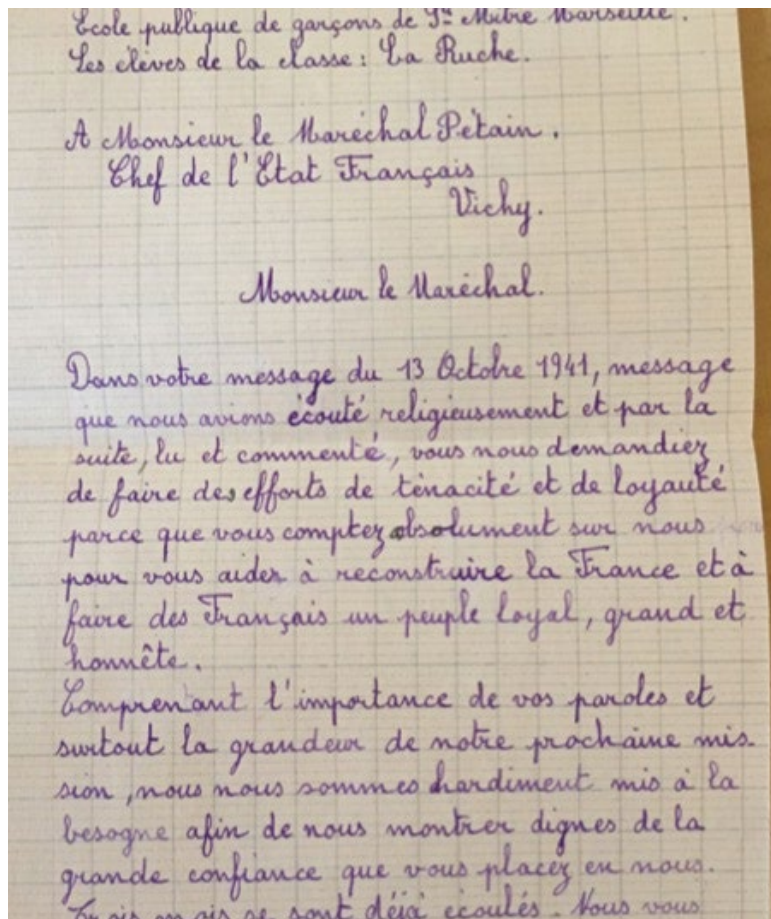 Ecole publique de garçons de Ste Mitre Marseille.
Les élèves de la classe : La Ruche.
A Monsieur le Maréchal Pétain.
Chef de l'Etat Français
Vichy.
Monsieur le Maréchal.
Dans votre message du 13 Octobre 1941, message
que nous avions écouté religieusement et par la
suite, lu et commenté, vous nous demandiez
de faire des efforts de ténacité et de loyauté
parce que vous comptez absolument sur nous
pour vous aider à reconstruire la France et à
faire des Français un peuple loyal, grand et
honnête.
Comprenant l'importance de vos paroles et
surtout la grandeur de notre prochaine mis-
sion, nous nous sommes hardiment mis à la
besogne afin de nous montrer dignes de la
grande confiance que vous placez en nous.
Trois mois se sont déjà écoulés. Nous vous